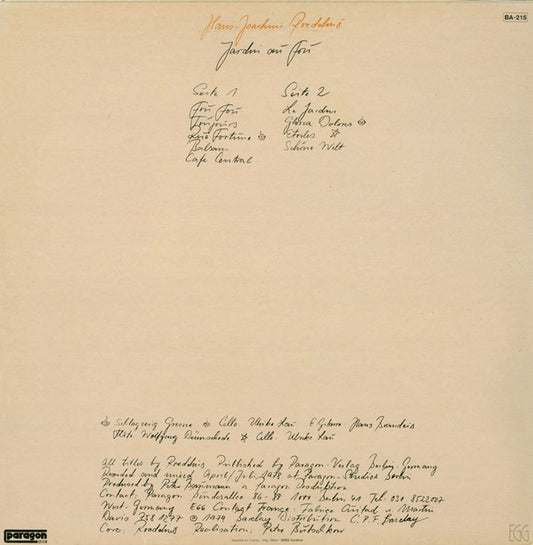 Hans-Joachim Roedelius
BA-215
Jardin au Fou
Seite 1
Fou Fou
Toujours
Rue Fortune
Balsam
Cafe Central
Seite 2
Le Jardin
Gloria Dolores
Etoiles
Schöne Welt
Schlagzeug Cello: Ulrike E Gitarre Hans
Flöte Wolfgang Cello: Ulrike
All titles by Roedelius. Published by Paragon-Verlag Berlin, Germany
Recorded and mixed April/Juli 1978 at Paragon-Studios Berlin
Produced by Peter Baumann a Paragon Produktion
Contact: Paragon 86-88 1000 Berlin Tel. 030
West-Germany EGG Contact France: Fabrice Martin
Paris 758 1277 ℗ 1979 Barclay Distribution C.P.F. Barclay
Cover: Roedelius Realisation: Peter Bütschkow
paragon
EGG